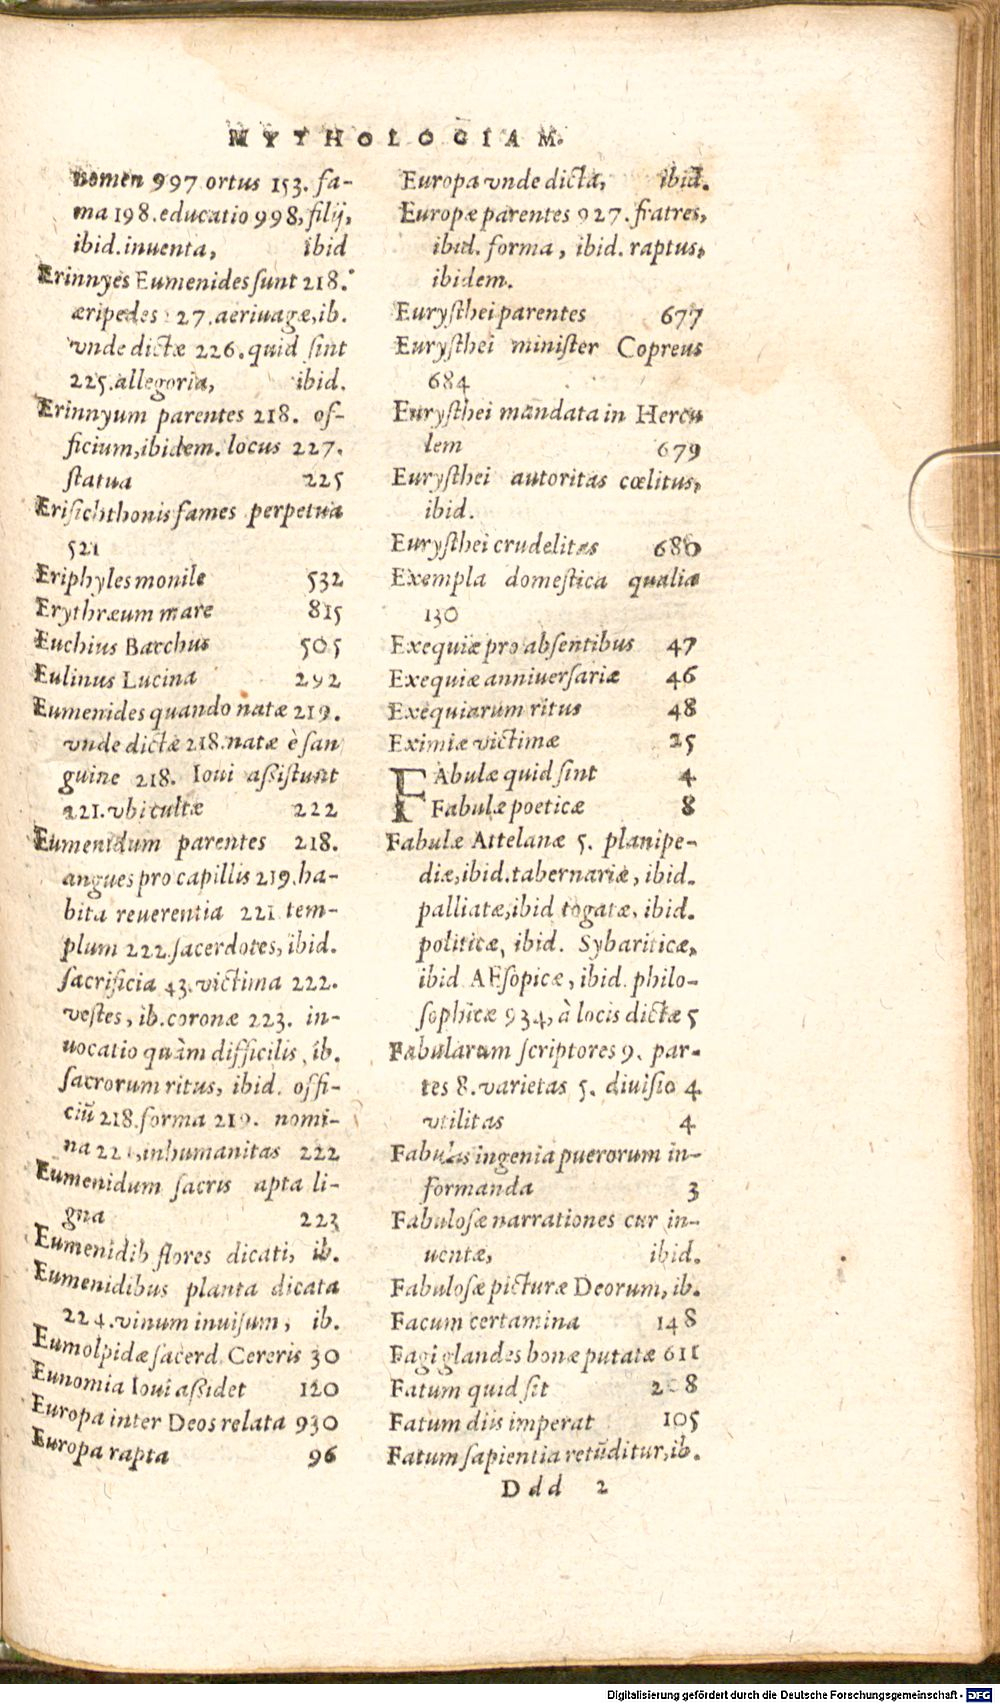 MYTHOLOGIAM.
nomen 997 ortus 153. fa-
ma 198. educatio 998, filij,
ibid. inuenta, ibid
Erinnyes Eumenides sunt 218.
æripedes 27. aeriuagæ, ib.
vnde dictæ 226. quid sint
225. allegoria, ibid.
Erinnyum parentes 218. of-
ficium, ibidem. locus 227.
statua 225
Erisichthonis fames perpetua
521
Eriphyles monile 532
Erythræum mare 815
Euchius Bacchus 505
Eulinus Lucina 292
Eumenides quando natæ 219.
vnde dictæ 218. natæ è san
guine 218. Ioui assistunt
221. vbi cultæ 222
Eumenidum parentes 218.
angues pro capillis 219. ha-
bita reuerentia 221 tem-
plum 222. sacerdotes, ibid.
sacrificia 43. victima 222.
vestes, ib. coronæ 223. in-
uocatio quàm difficilis, ib.
sacrorum ritus, ibid. offi-
ciū 218. forma 219. nomi-
na 221, inhumanitas 222
Eumenidum sacris apta li-
gna 223
Eumenidib flores dicati, ib.
Eumenidibus planta dicata
224. vinum inuisum, ib.
Eumolpidæ sacerd. Cereris 30
Eunomia Ioui assidet 120
Europa inter Deos relata 930
Europa rapta 96
Europa vnde dicta, ibid.
Europæ parentes 927. fratres,
ibid. forma, ibid. raptus,
ibidem.
Eurysthei parentes 677
Eurysthei minister Copreus
684
Eurysthei mandata in Hercu
lem 679
Eurysthei autoritas cœlitus,
ibid.
Eurysthei crudelitas 680
Exempla domestica qualia
130
Exequiæ pro absentibus 47
Exequiæ anniuersariæ 46
Exequiarum ritus 48
Eximiæ victimæ 25
FAbulæ quid sint 4
Fabulæ poeticæ 8
Fabulæ Attelanæ 5. planipe-
diæ, ibid. tabernariæ, ibid.
palliatæ, ibid togatæ, ibid.
politicæ, ibid. Sybariticæ,
ibid AEsopicæ, ibid. philo-
sophicæ 934, à locis dictæ 5
Fabularum scriptores 9. par-
tes 8. varietas 5. diuisio 4
vtilitas 4
Fabulis ingenia puerorum in-
formanda 3
Fabulosæ narrationes cur in-
uentæ, ibid.
Fabulosæ picturæ Deorum, ib.
Facum certamina 148
Fagi glandes bonæ putatæ 611
Fatum quid sit 208
Fatum diis imperat 105
Fatum sapientia retūditur, ib.
Ddd 2
Digitalisierung gefördert durch die Deutsche Forschungsgemeinschaft - DFG